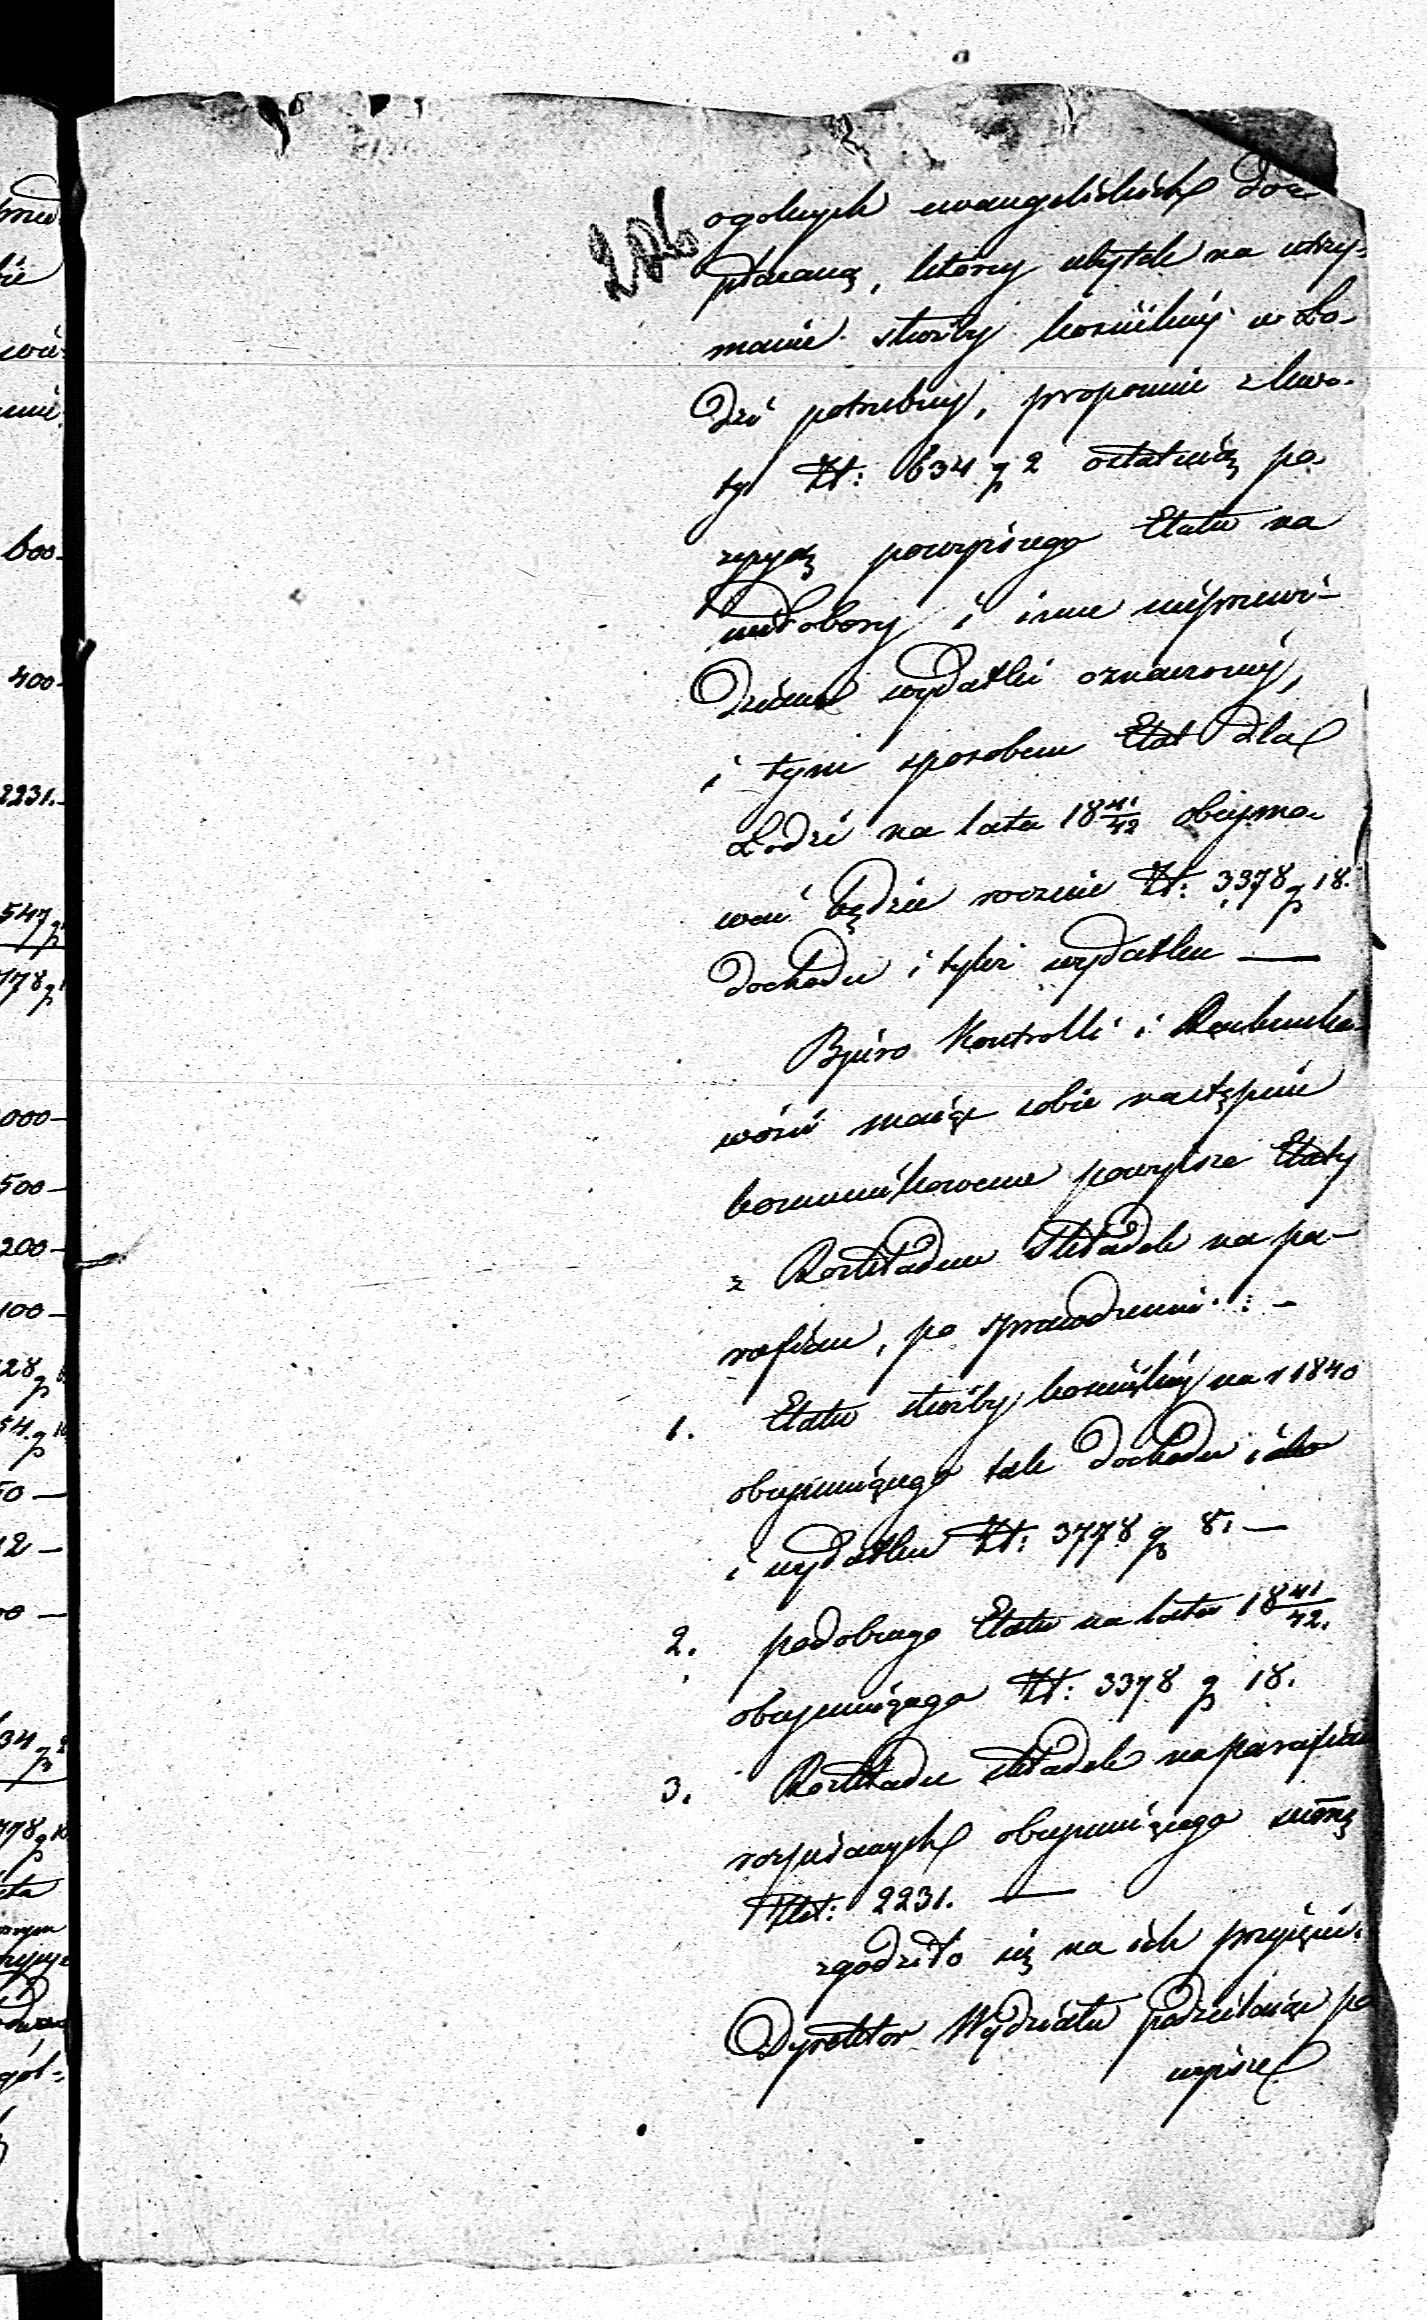 ogolnych ewangelickich do
płacaną, który ubytek na utrzy-
manie służby kościelnej w Ło-
dzi potrzebny, proponuie z kwo-
ty Zł: 634 g 2 ostatnią po-
zycyą powyższego Etatu na
niedobory i inne nieprzewi-
dziane wydatki oznaczonej,
i tym sposobem Etat dla
Łodzi na lata 18 41/42 obeymo-
wać będzie rocznie Zł: 3378 g 18.
dochodu i tyleż wydatku —
Bjuro Kontrolli i Rachunko-
wości maiąc sobie następnie
kommunikowane powyższe Etaty
z Rozkładem składek na pa-
rafian, po sprawdzeniu : —
1. Etatu służby kościelnej na r 1840
obeymuiącego tak dochodu iako
i wydatku Zł: 3778 g 8. —
2. podobnego Etatu na lata 18 41/42.
obeymuiącego Zł: 3378 g 18.
3. Rozkładu składek na parafian
rozpisanych obeymuiącego summę
Zł: 2231. —
zgodziło się na ich przyięcie.
Dyrektor Wydziału podzielaiąc po
wyższe
600 —
400 —
2231. —
547 g
778 g
000 —
500 —
200 —
100 —
28 g
54. g
50 —
12 —
00 —
634 g 2
778 g